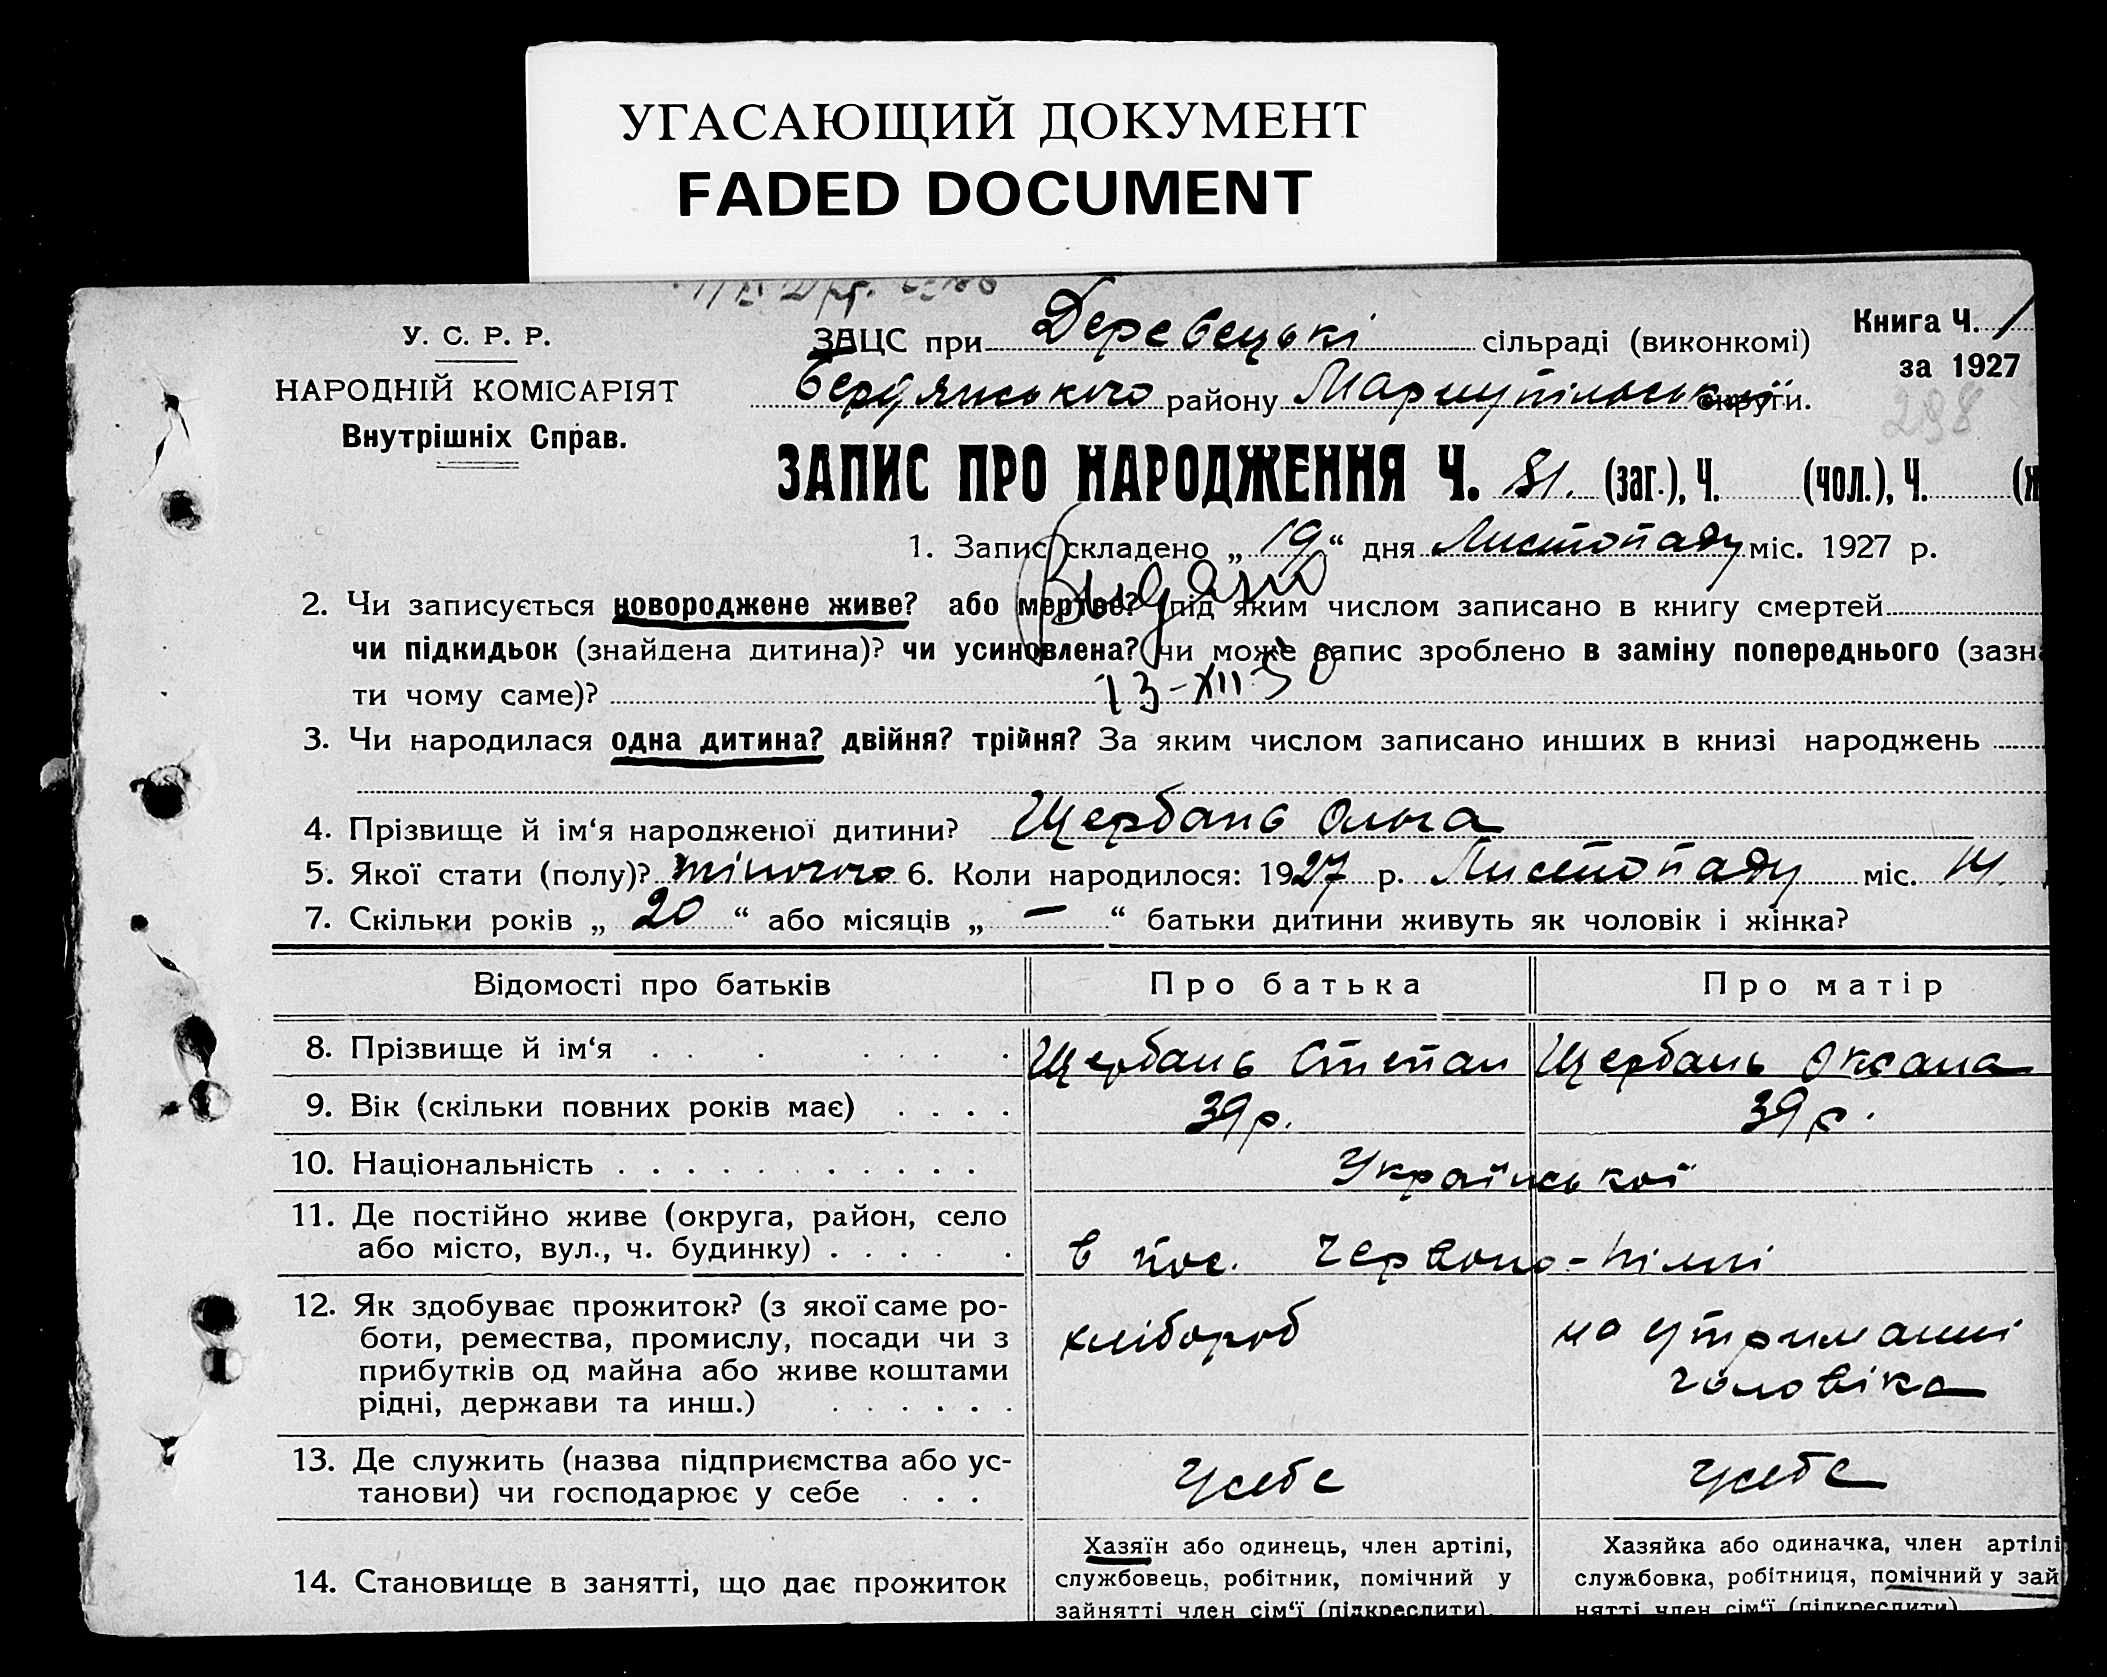 УГАСАЮЩИЙ ДОКУМЕНТ
FADED DOCUMENT
У. С. Р. Р.
НАРОДНІЙ КОМІСАРІЯТ
Внутрішніх Справ.
ЗАЦС при Деревецькі сільраді (виконкомі)
Бердянського району Маріупільської округи.
Книга Ч. 1
за 1927
298
ЗАПИС ПРО НАРОДЖЕННЯ Ч. 81. (заг.), Ч. (чол.), Ч.
1. Запис складено „ 19 “ дня Листопаду міс. 1927 р.
Видано
2. Чи записується новороджене живе? або мертве? під яким числом записано в книгу смертей
чи підкидьок (знайдена дитина)? чи усиновлена? чи може запис зроблено в заміну попереднього (зазна
ти чому саме)?
13-XII 50
3. Чи народилася одна дитина? двійня? трійня? За яким числом записано инших в книзі народжень
4. Прізвище й ім‘я народженої дитини? Щербань Ольга
5. Якої стати (полу)? жіночого 6. Коли народилося: 1927 р. Листопаду міс. 14.
7. Скільки років „ 20 “ або місяців „ — “ батьки дитини живуть як чоловік і жінка?
Відомості про батьків Про батька Про матір
8. Прізвище й ім‘я Щербань Степан Щербань Оксана
9. Вік (скільки повних років має) 39 р. 39 р.
10. Національність Української
11. Де постійно живе (округа, район, село
або місто, вул., ч. будинку) в пос. Червоно-Піллі
12. Як здобуває прожиток? (з якої саме ро-
боти, ремества, промислу, посади чи з
прибутків од майна або живе коштами
рідні, держави та инш.)
хлібороб
на утриманні
чоловіка
13. Де служить (назва підприємства або ус-
танови) чи господарює у себе
у себе у себе
14. Становище в занятті, що дає прожиток
Хазяїн або одинець, член артілі,
службовець, робітник, помічний у
зайнятті член сім‘ї (підкреслити).
Хазяйка або одиначка, член артілі
службовка, робітниця, помічний у зай
нятті член сім‘ї (підкреслити)